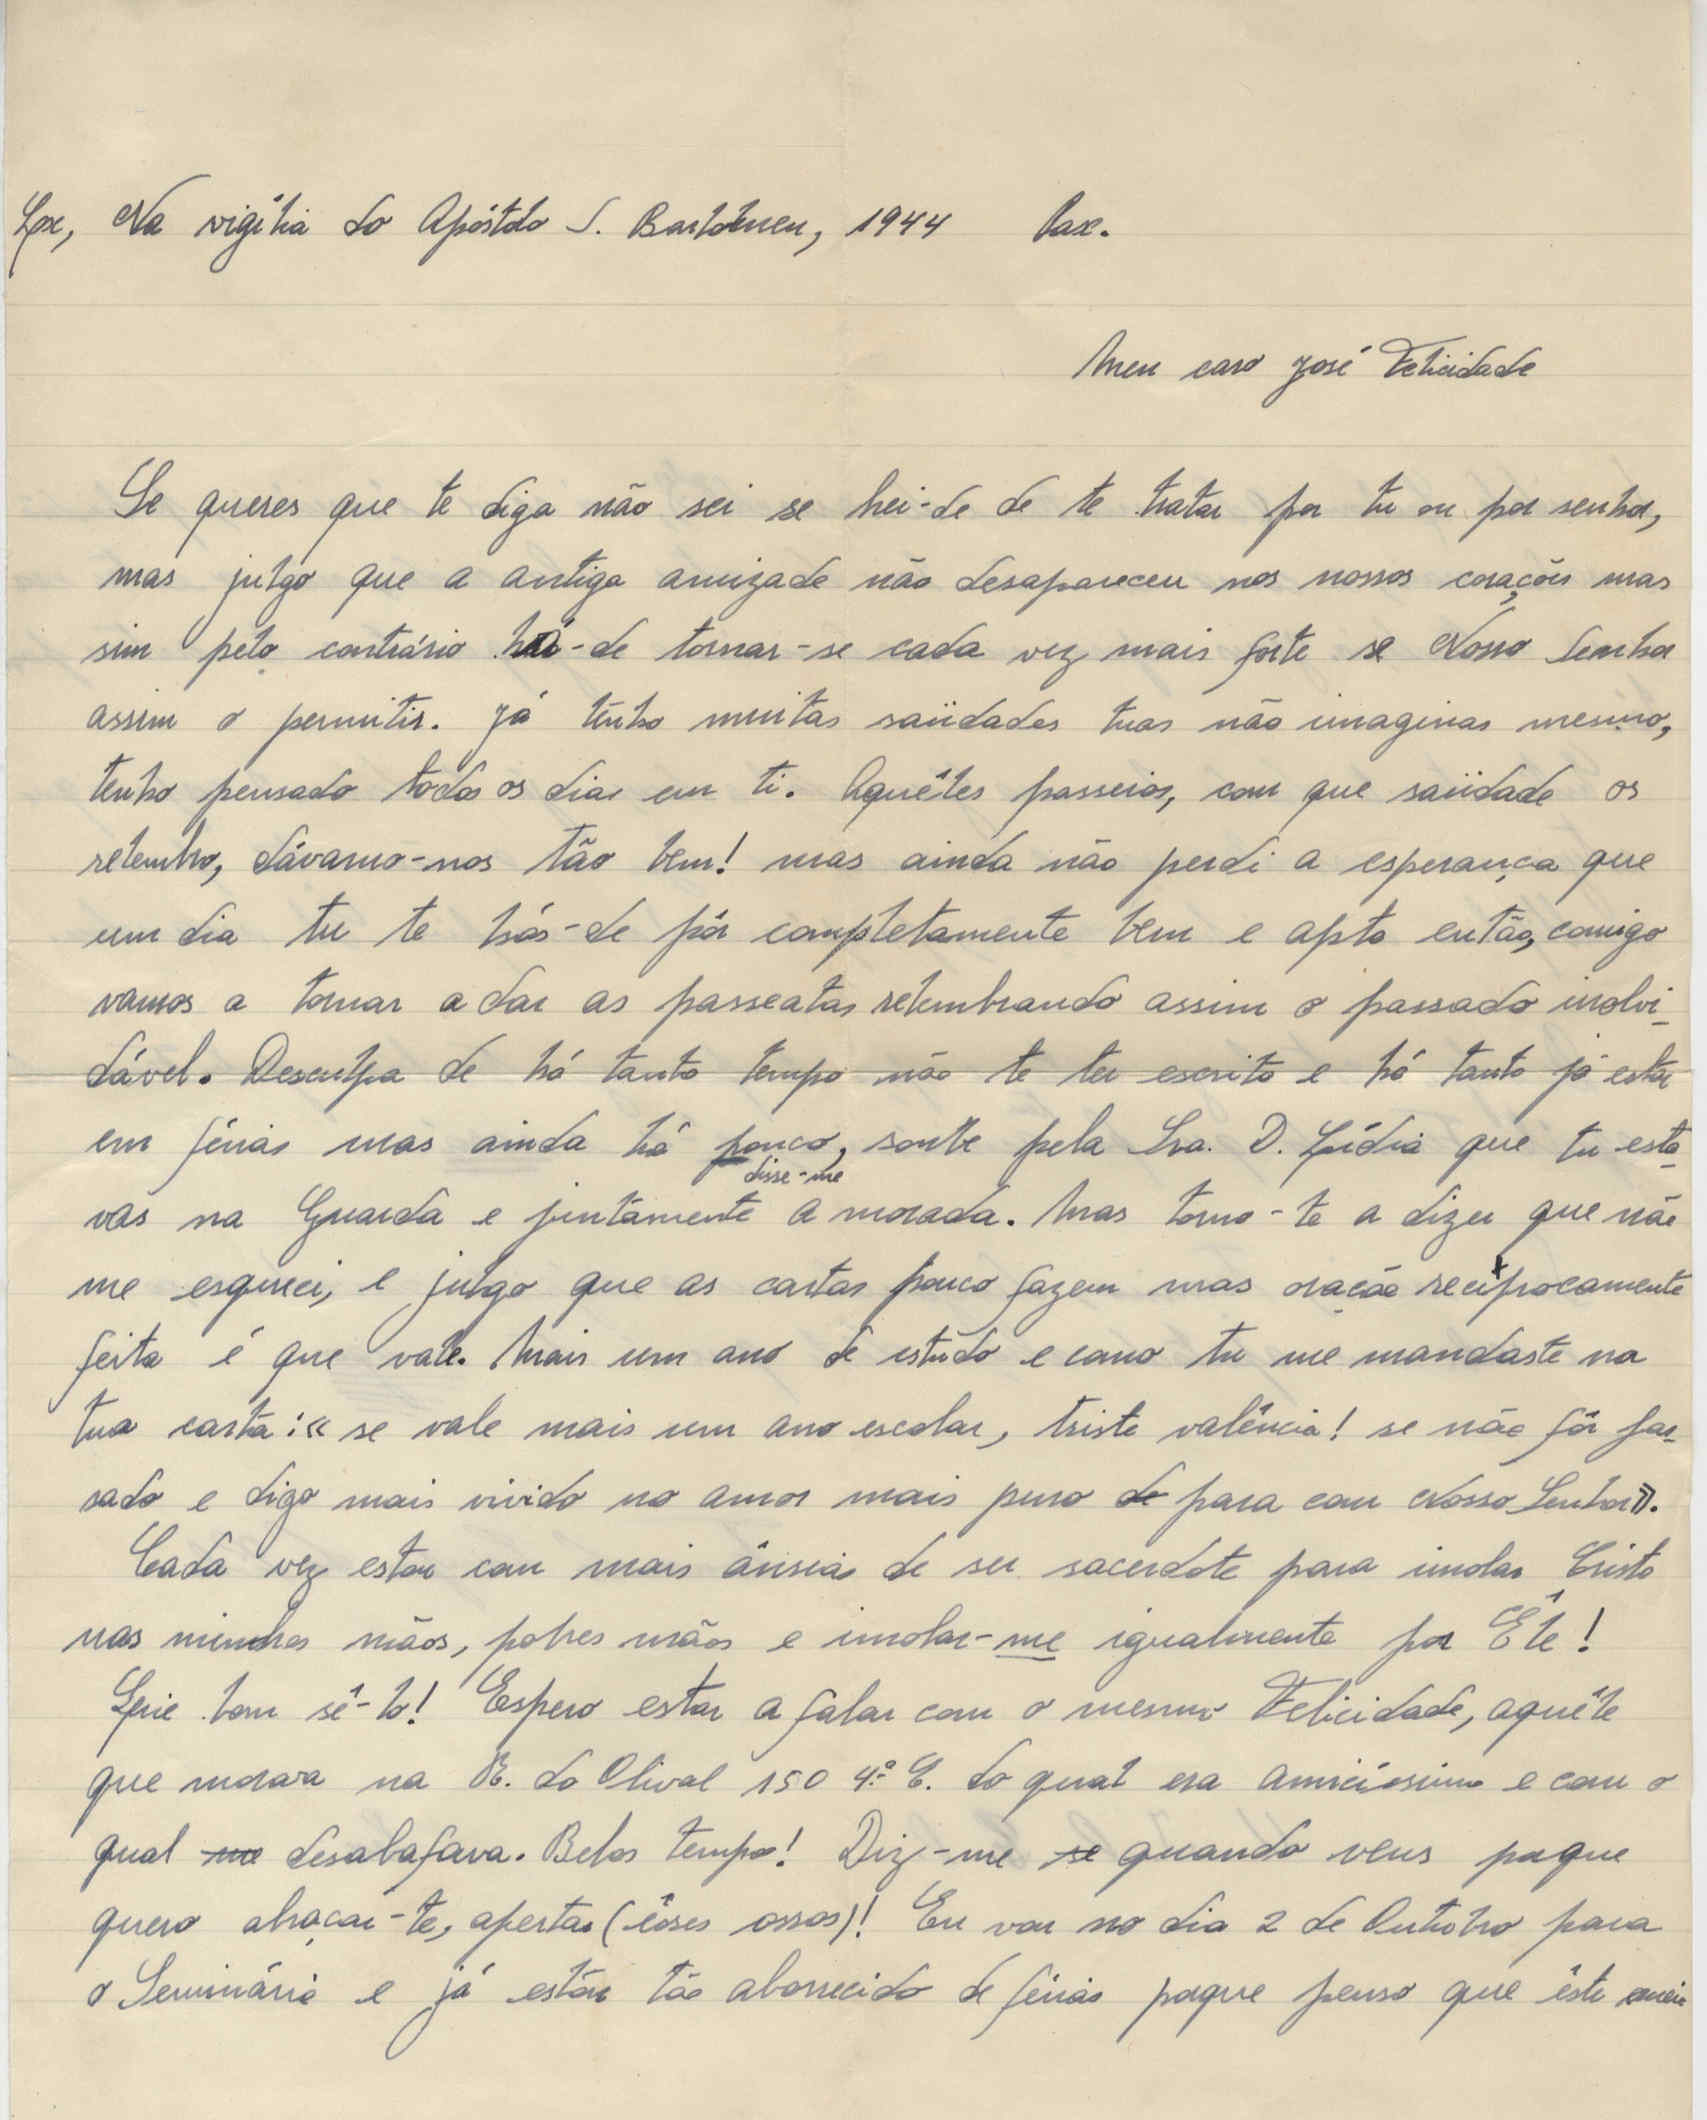 Lx, Na vigília do Apóstolo S. Bartolomeu, 1944 Pax.
Meu caro José Felicidade
Se queres que te diga não sei se hei-de de te tratar por tu ou por senhor,
mas julgo que a antiga amizade não desapareceu nos nossos corações mas
sim pelo contrário há-de tornar-se cada vez mais forte se Nosso Senhor
assim o permitir. Já tenho muitas saüdades tuas não imaginas mesmo,
tenho pensado todos os dias em ti. Aquêles passeios, com que saüdade os
relembro, dávamo-nos tão bem! mas ainda não perdi a esperança que
um dia tu te hás-de pôr completamente bem e apto então, comigo
vamos a tornar a dar as passeatas relembrando assim o passado inolvi-
dável. Desculpa de há tanto tempo não te ter escrito e há tanto já estar
em férias mas ainda há pouco, soube pela Sra. D. Lídia que tu esta-
disse-me
vas na Guarda e juntamente a morada. Mas torno-te a dizer que não
me esqueci, e julgo que as cartas pouco fazem mas oração reciprocamente
feita é que vale. Mais um ano de estudo e como tu me mandaste na
tua carta: « se vale mais um ano escolar, triste valência! se não fôr pas-
sado e digo mais vivido no amor mais puro de para com Nosso Senhor».
Cada vez estou com mais ânsias de ser sacerdote para imolar Cristo
nas minhas mãos, pobres mãos e imolar-me igualmente por Êle!
Que bom sê-lo! Espero estar a falar com o mesmo Felicidade, aquêle
que morava na R. do Olival 150 4.º E. do qual era amicíssimo e com o
qual me desabafava. Belos tempos! Diz-me se quando vens porque
quero abraçar-te, apertar (êsses ossos)! Eu vou no dia 2 de Outubro para
o Seminário e já estou tão aborrecido de férias porque penso que êste